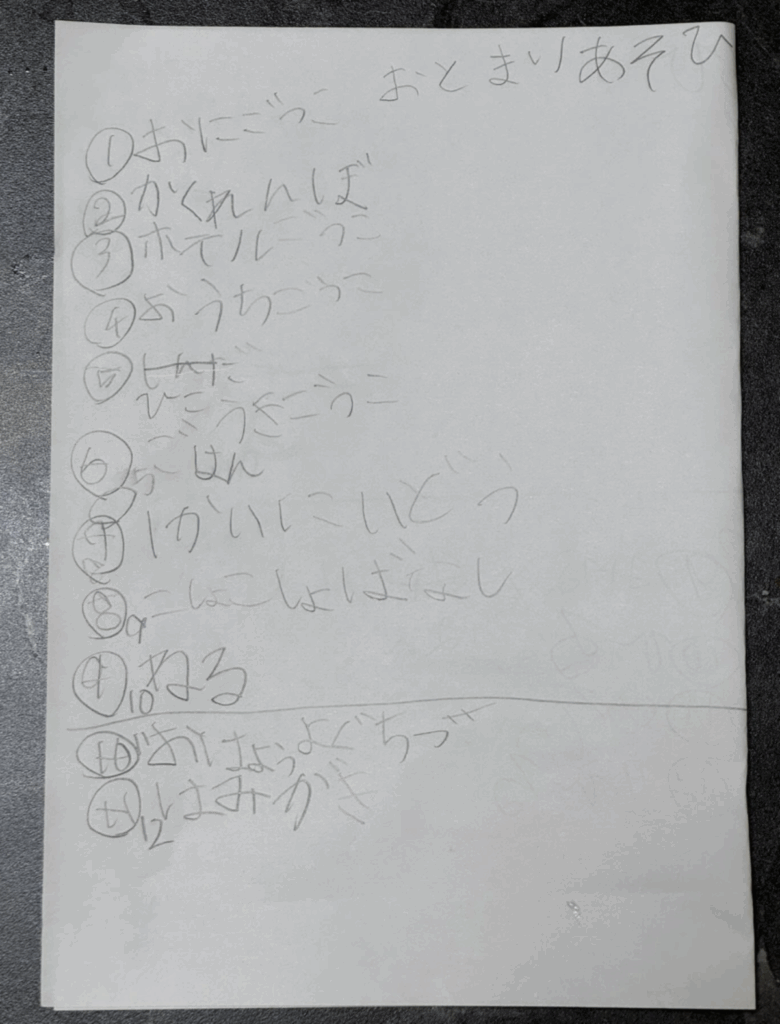 おとまりあそひ
①おにごっこ
②かくれんぼ
③ホテルごっこ
④おうちごっこ
⑤
ひこうきごうこ
⑥ごはん
しかいにいどう
⑧9こしょこしょばなし
10ねる
おはよう
12はみがき